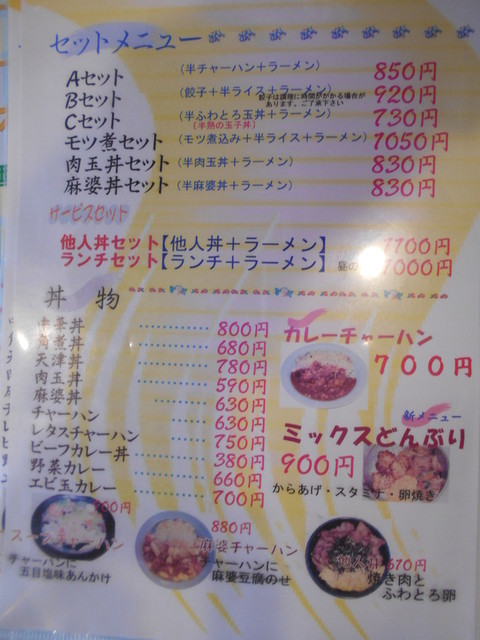 セットメニュー
Aセット (半チャーハン+ラーメン) 850円
Bセット (餃子+半ライス+ラーメン) 920円
餃子は調理に時間がかかる場合が
あります。ご了承下さい
Cセット (半ふわとろ玉丼+ラーメン) 730円
(半熟の玉子丼)
モツ煮セット (モツ煮込み+半ライス+ラーメン) 1050円
肉玉丼セット (半肉玉丼+ラーメン) 830円
麻婆丼セット (半麻婆丼+ラーメン) 830円
サービスセット
他人丼セット【他人丼+ラーメン】 1100円
ランチセット【ランチ+ラーメン】 昼の 1000円
丼物
中華丼 800円
角煮丼 680円
天津丼 780円
肉玉丼 590円
麻婆丼 630円
チャーハン 630円
レタスチャーハン 750円
ビーフカレー丼 380円
野菜カレー 660円
エビ玉カレー 700円
カレーチャーハン
700円
新メニュー
ミックスどんぶり
900円
からあげ・スタミナ・卵焼き
スープチャーハン
チャーハンに
五目塩味あんかけ
880円
麻婆チャーハン
チャーハンに
麻婆豆腐のせ
他人丼 670円
焼き肉と
ふわとろ卵